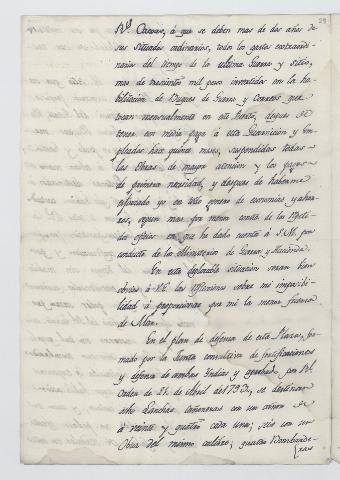 29
R.s Caxas, á que se deben mas de dos años de
sus situados ordinarios, todos los gastos extraordi-
narios del tiempo de la ultima Guerra y sitio,
mas de trescientos mil pesos invertidos en la ha-
bilitacion de Buques de Guerra y Correos que
van mensualmente en este Puerto, despues de
tener con media paga á esta Guarnicion y Em-
pleados hace quince meses, suspendidas todas
las Obras de mayor atencion y los pagos
de primera necesidad, y despues de haberme
esforzado yo en todo genero de economias y ahor-
ros, segun mas por menor consta de los
oficios en que he dado cuenta á S. M. por
conducto de los Ministerios de Guerra y Hacienda.
En esta deplorable situacion verán han
obvias á V.E. las reflexiones sobre mi imposibi-
lidad á proporcionar por mi la menor fuerza
de Mar.
En el plan de defensa de esta Plaza, for-
mado por la Junta consultiva de fortificaciones
y defensa de ambas Indias y aprobado por Rl.
Orden de 21. de Abril de 1793, se destinan
ocho Lanchas cañoneras con un cañon de
á veinte y quatro cada una; seis con un
Obus del mismo calibre; quatro Bombarde-
ras